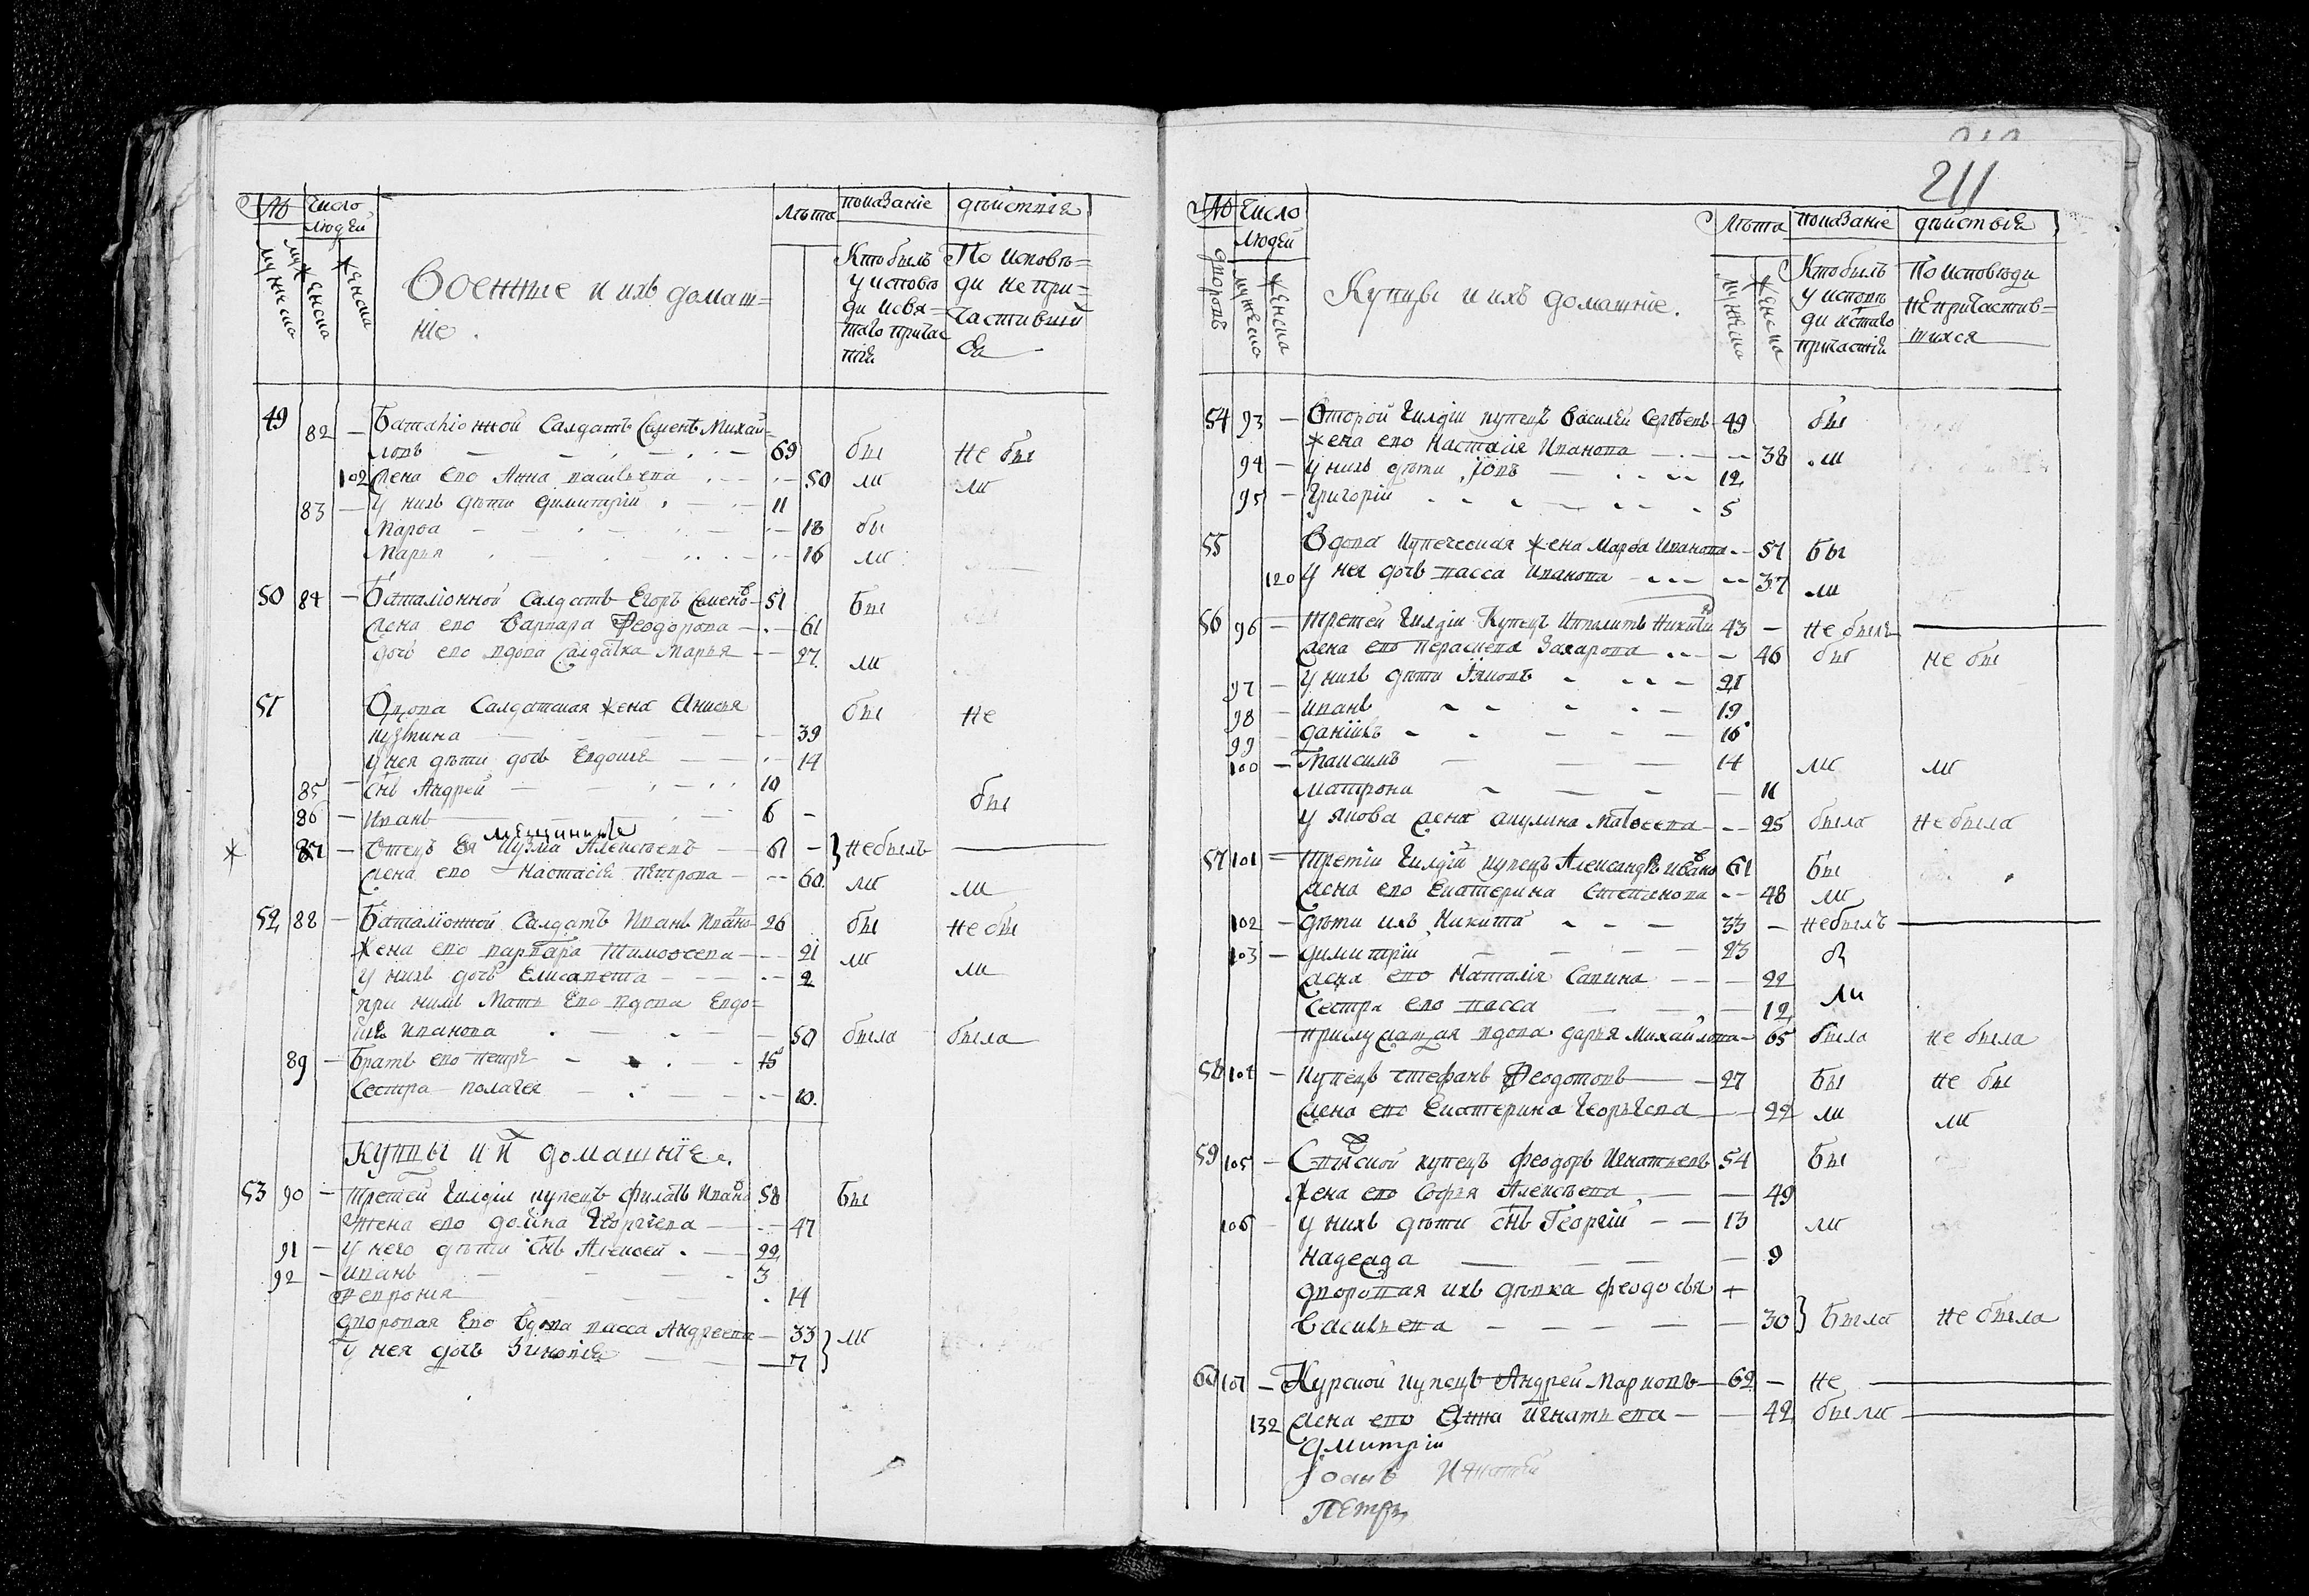 № Число людей Лѣта показанiе дѣйствiя
мужеска
мужеска
женска
Военные и ихъ домаш=
нiе.
Кто былъ
у испове
ди и свя=
таго прича
тiя
По исповѣ=
ди не при=
частивый
ся
49 82 — Баталiонной Салдатъ Семенъ Михай=
ловъ 69 бы не бы
102 жена его Анна васильева 50 ли ли
83 — у нихъ дѣти димитрiй 11
Марѳа 18 бы
Марья 16 ли
50 84 — Баталiонной Салдатъ Егоръ Семено 51 Бы
жена его варвара Ѳеодорова 61
дочь его вдова Салдатка Марья 27 ли
51 Вдова Салдатская жена Анисья бы не
кузмина 39
у нея дѣти дочь Евдокiя 14
85 — снъ Андрей 10
86 — Иванъ 6 бы
мещининъ
* 87 — Отецъ Ея Кузма Алексѣевъ 61 — } не былъ
жена его Настасiя Петрова 60 ли ли
52 88 — Баталiонной Салдатъ Иванъ Ивано 26 бы не бы
жена его варвара Тимоѳеева 21 ли
у нихъ дочь Елисавета 2 ли
при нихъ Мать Его вдова Евдо=
кiя Иванова 50 была была
89 — Братъ его Петръ 15
Сестра Полагея 10.
Купцы и и домашнiе.
53 90 — Третей Гилдiи купецъ Филатъ Ивано 58 Бы
жена его домна Георгiева 47
91 — у него дѣти снъ Алексей 22
92 — Иванъ 3
Феврония 14
дворовая Его вдова васса Андреева 33 } ли
У нея дочь Зиновiя 7
211
№ Число людей Лѣта показанiе дѣйствiя
дворовъ
мужеска
женска
Купцы и ихъ домашнiе.
мужеска
женска
Кто былъ
у исповѣ
ди и стаго
причастiя
По исповѣди
не причастив=
шихся
54 93 — Второй Гилдiи купецъ Василей Сергѣевъ 49 бы
жена его Настасiя Иванова 38 ли
94 — у нихъ дѣти Iовъ 12
95 — Григорiй 5
55 Вдова купеческая жена Марѳа Иванова 57 Бы
120 у нея дочь васса Иванова 37 ли
56 96 — Третей Гилдiи Купецъ Ипполитъ Никити 43 — не былъ
жена его Параскева Захарова 46 бы не бы
97 — у нихъ дѣти Яковъ 21
98 — Иванъ 19
99 — данiилъ 16
100 — Максимъ 14 ли ли
матрона 11
у Якова жена акулина Матвеева 25 была не была
57 101 — Третiй Гилдiй купецъ Александръ Ивано 61 Бы
жена его Екатерина Степанова 48 ли
102 — дѣти ихъ Никита 33 — не былъ
103 — димитрiй 23 б
жена его Наталiя Савина 22
Сестра его васса 12 ли
прислужащая вдова дарья Михайлова 65 была не была
58 104 — Купецъ Стефанъ Ѳеодотовъ 27 Бы не бы
жена его Екатерина Георьгева 22 ли ли
59 105 — купецъ Феодоръ Игнатьевъ 54 Бы
жена его Софья Алексѣева 49
106 — у нихъ дѣти снъ Георгiй 13 ли
надежда 9
дворовая ихъ дѣвка феодосья +
васильева 30 } Была не была
60 107 — Курской купецъ Андрей Марковъ 62 — не
132 жена его Анна Игнатьева 42 были
Дмитрiи
Iоанъ Игнатей
Петръ